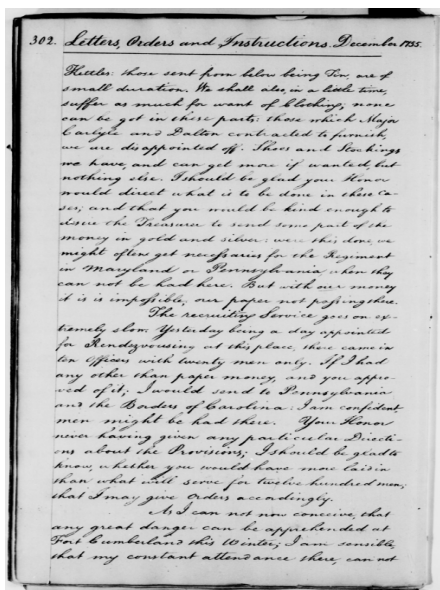 302. Letters, Orders and Instructions. December 1755.
Kettles: those sent from below being Tin, are of
small duration. We shall also, in a little time,
suffer as much for want of clothing; none
can be got in these parts: those which Major
Carlyle and Dalton contracted to furnish,
we are disappointed off. Shoes and Stockings
we have, and can get more if wanted, but
nothing else. I should be glad your Honor
would direct what is to be done in these ca-
ses; and that you would be kind enough to
desire the Treasurer to send some part of the
money in gold and silver: were this done, we
might often get necessaries for the Regiment
in Maryland or Pennsylvania when they
can not be had here. But with our money
it is impossible, our paper not passing there.
The recruiting Service goes on ex-
tremely slow. Yesterday being a day appointed
for Rendezvousing at this place, there came in
ten Officers with twenty men only. If I had
any other than paper money, and you appro-
ved of it; I would send to Pennsylvania
and the Borders of Carolina: I am confident
men might be had there. Your Honor
never having given any particular Directi-
ons about the Provisions; I should be glad to
know, whether you would have more laid in
than what will serve for twelve hundred men;
that I may give Orders accordingly.
As I can not now conceive, that
any great danger can be apprehended at
Fort Cumberland this Winter; I am sensible,
that my constant attendance there, can not